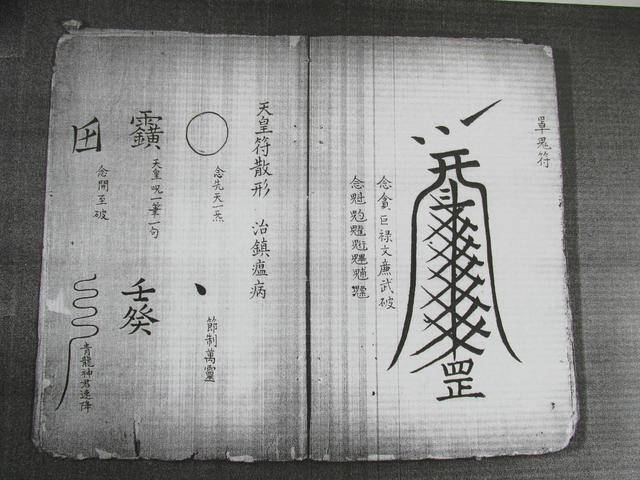 罩鬼符
罡
念貪巨祿文廉武破
念魁
天皇符散形 治鎮瘟病
念先天一炁
節制萬靈
天皇咒一筆一句
壬癸
念開至破
青龍神君速降